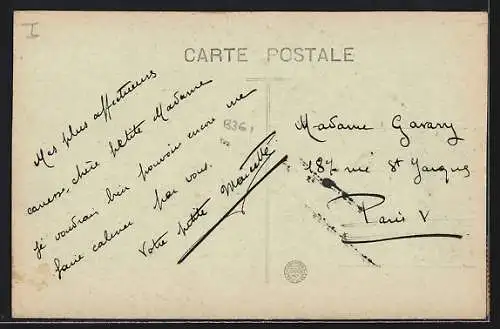 I
CARTE POSTALE
B361
Mes plus affectueuses
caresses, chère petite Madame
je voudrais bien pouvoir encore me
faire caliner par vous.
Votre petite Marcelle
Madame Gavary
187 rue St Jacques
Paris V